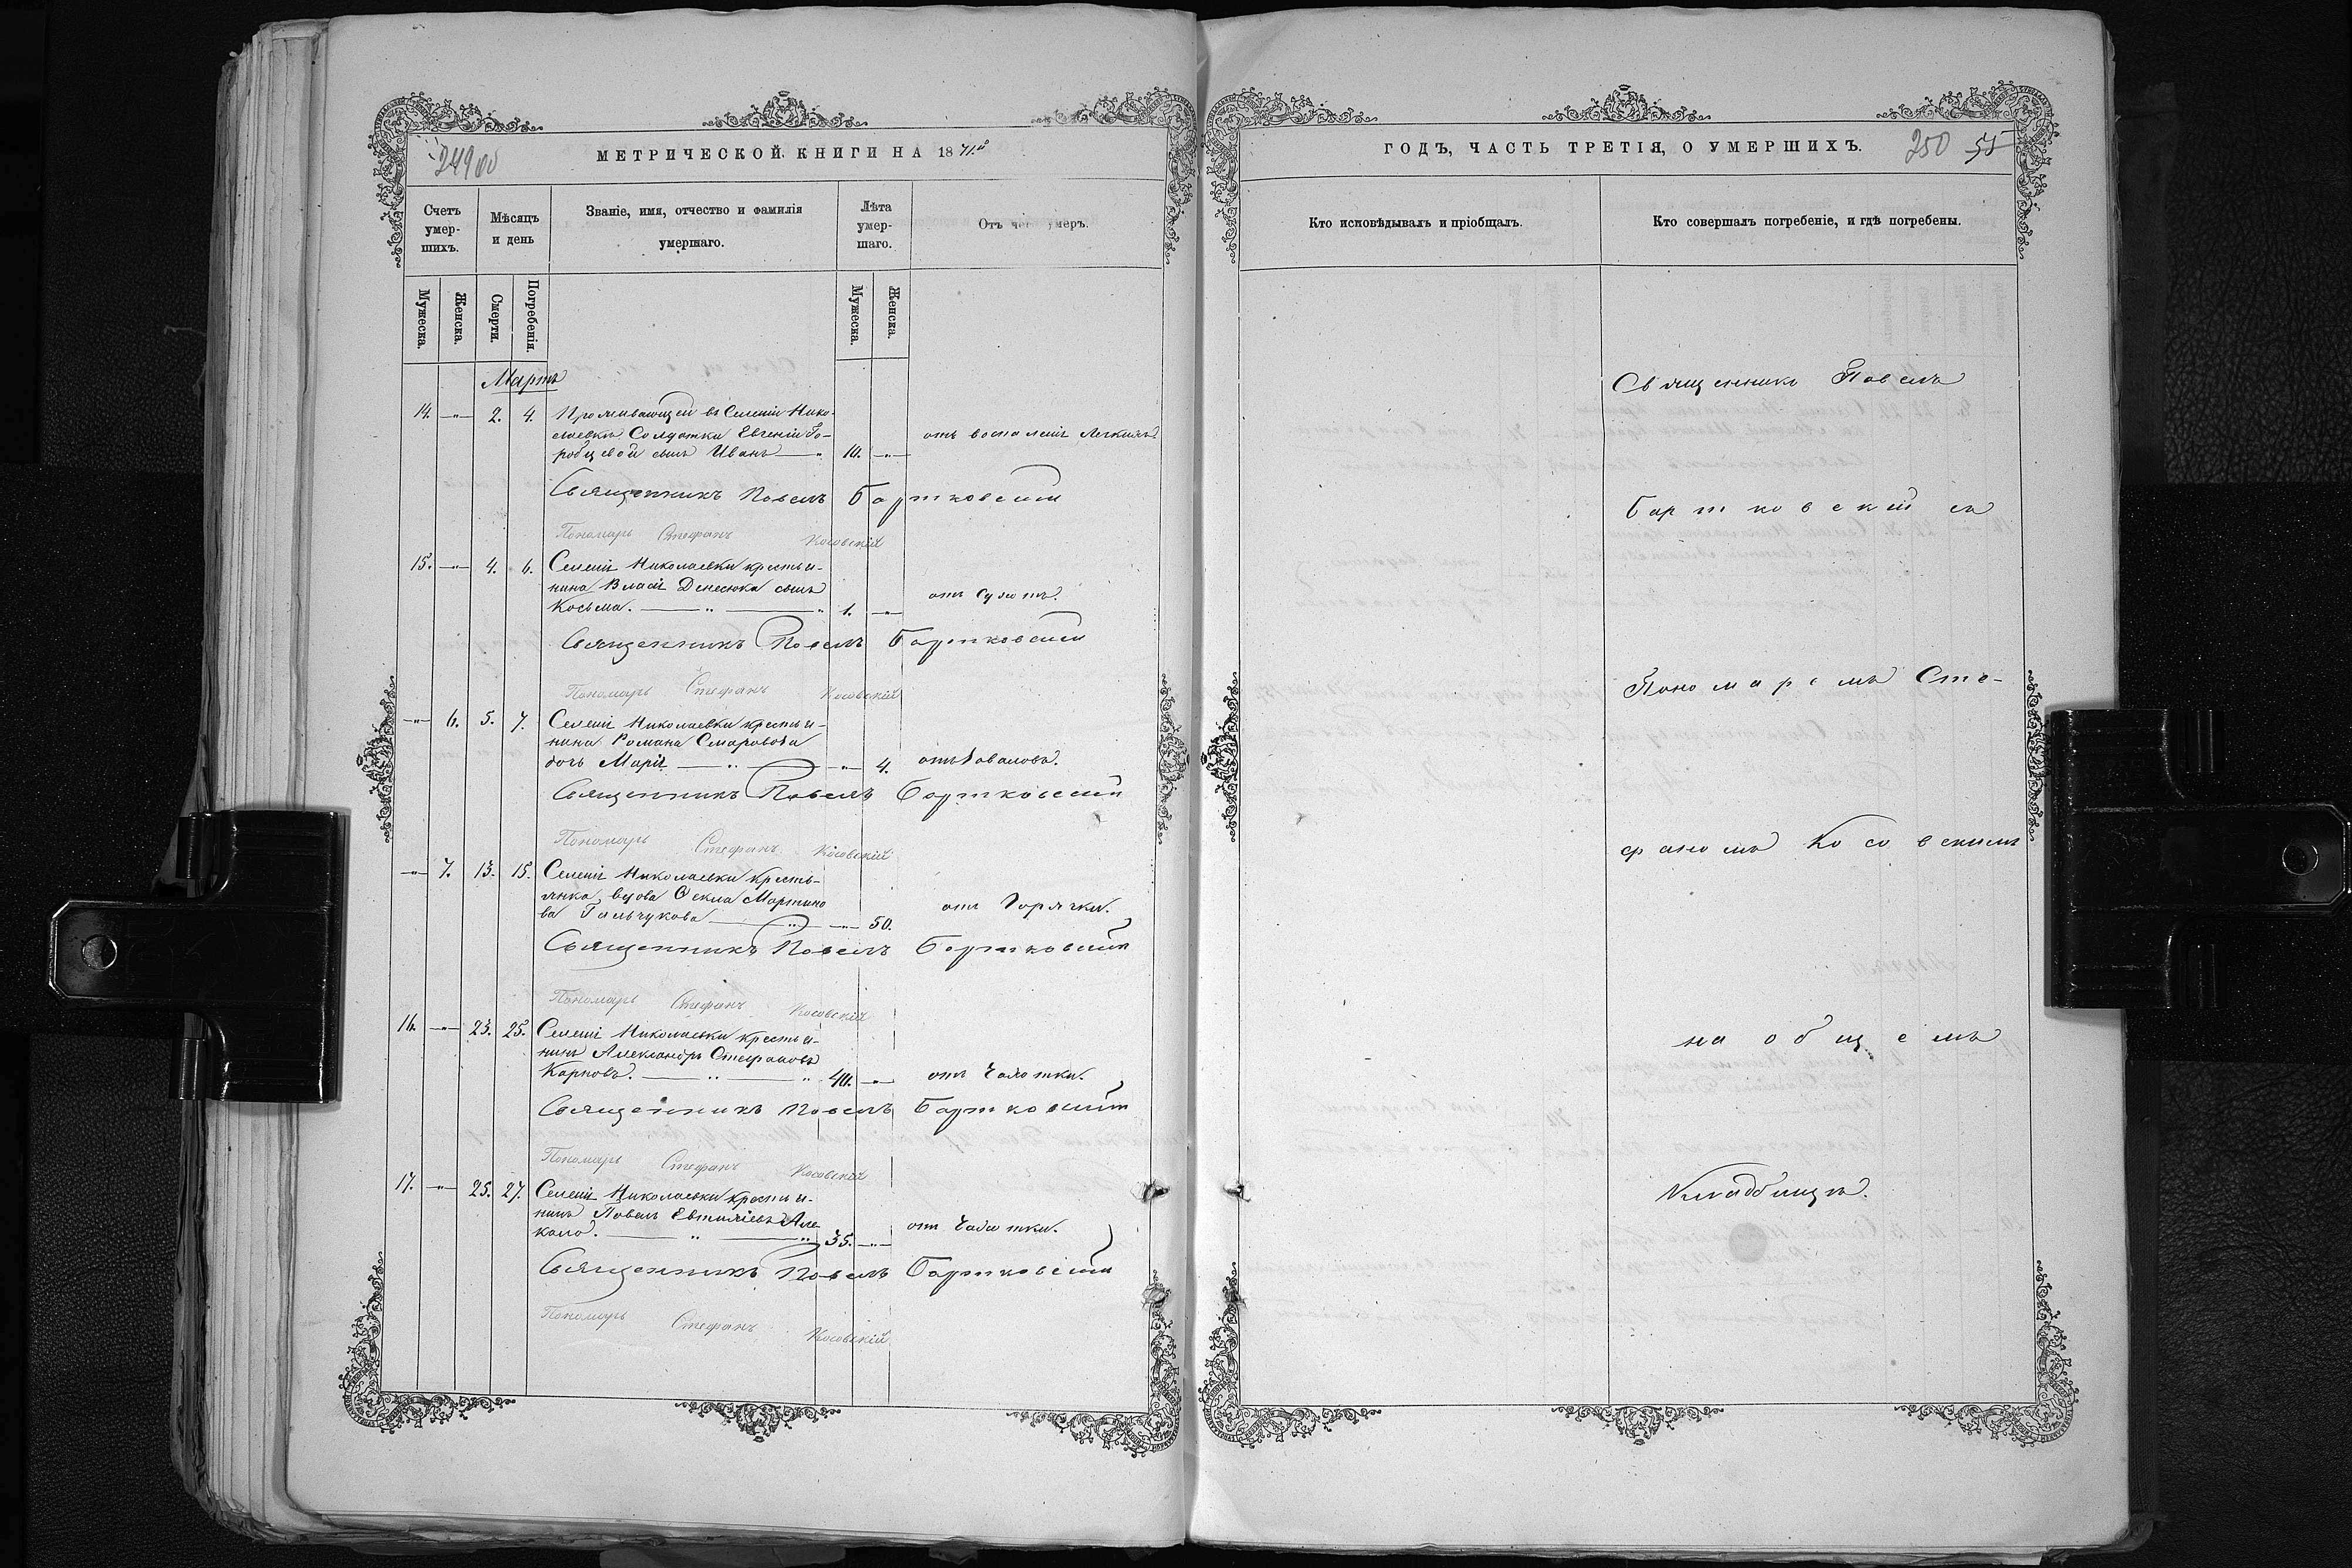 249 об
МЕТРИЧЕСКОЙ КНИГИ НА 1871й
Счетъ умер-шихъ.
Мѣсяцъ и день
Званіе, имя, отчество и фамилія умершаго.
Лѣта умер-шаго.
Отъ чего умеръ.
Мужеска.
Женска.
Смерти.
Погребенія.
Мужеска.
Женска.
Мартъ
14. —"— 2. 4. Проживающей въ Селеніи Нико-
лаевкѣ Солдатки Евгеніи Го-
робцевой сынъ Иванъ —" 10. —"— отъ воспаленія легкихъ.
Священникъ Павелъ Бартковскій
Пономарь Стефанъ Косовскій
15. —"— 4. 6. Селенія Николаевки крестья-
нина Власія Денесюка сынъ
Косьма. —"—" 1. —"— отъ сухотъ.
Священникъ Павелъ Бартковскій
Пономарь Стефанъ Косовскій
—"— 6. 5. 7. Селенія Николаевки крестья-
нина Романа
дочь Марія —"— —"— 4.
Священникъ Павелъ Бартковскій
Пономарь Стефанъ Косовскій
—"— 7. 13. 15. Селенія Николаевки кресть-
янка, вдова Ѳекла Мартино
ва Гальчукова —"— —"— 50. отъ Горячки.
Священникъ Павелъ Бартковскій
Пономарь Стефанъ Косовскій
16. —"— 23. 25. Селенія Николаевки крестья-
нинъ Александръ Стефановъ
Карповъ. —"—" 40. —"— отъ Чахотки.
Священникъ Павелъ Бартковскій
Пономарь Стефанъ Косовскій
17. —"— 25. 27. Селенія Николаевки крестья-
нинъ Павелъ Евтихіевъ
35. —"— отъ Чахотки.
Священникъ Павелъ Бартковскій
Пономарь Стефанъ Косовскій
ГОДЪ, ЧАСТЬ ТРЕТІЯ, О УМЕРШИХЪ.
250 55
Кто исповѣдывалъ и пріобщалъ.
Кто совершалъ погребеніе, и гдѣ погребены.
Священникъ Павелъ
Бартковскій съ
Пономаремъ Сте-
фаномъ Косовскимъ
на общемъ
Кладбищѣ.